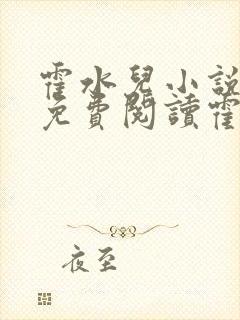 霍水兒小說
免費閱讀霍
夜至